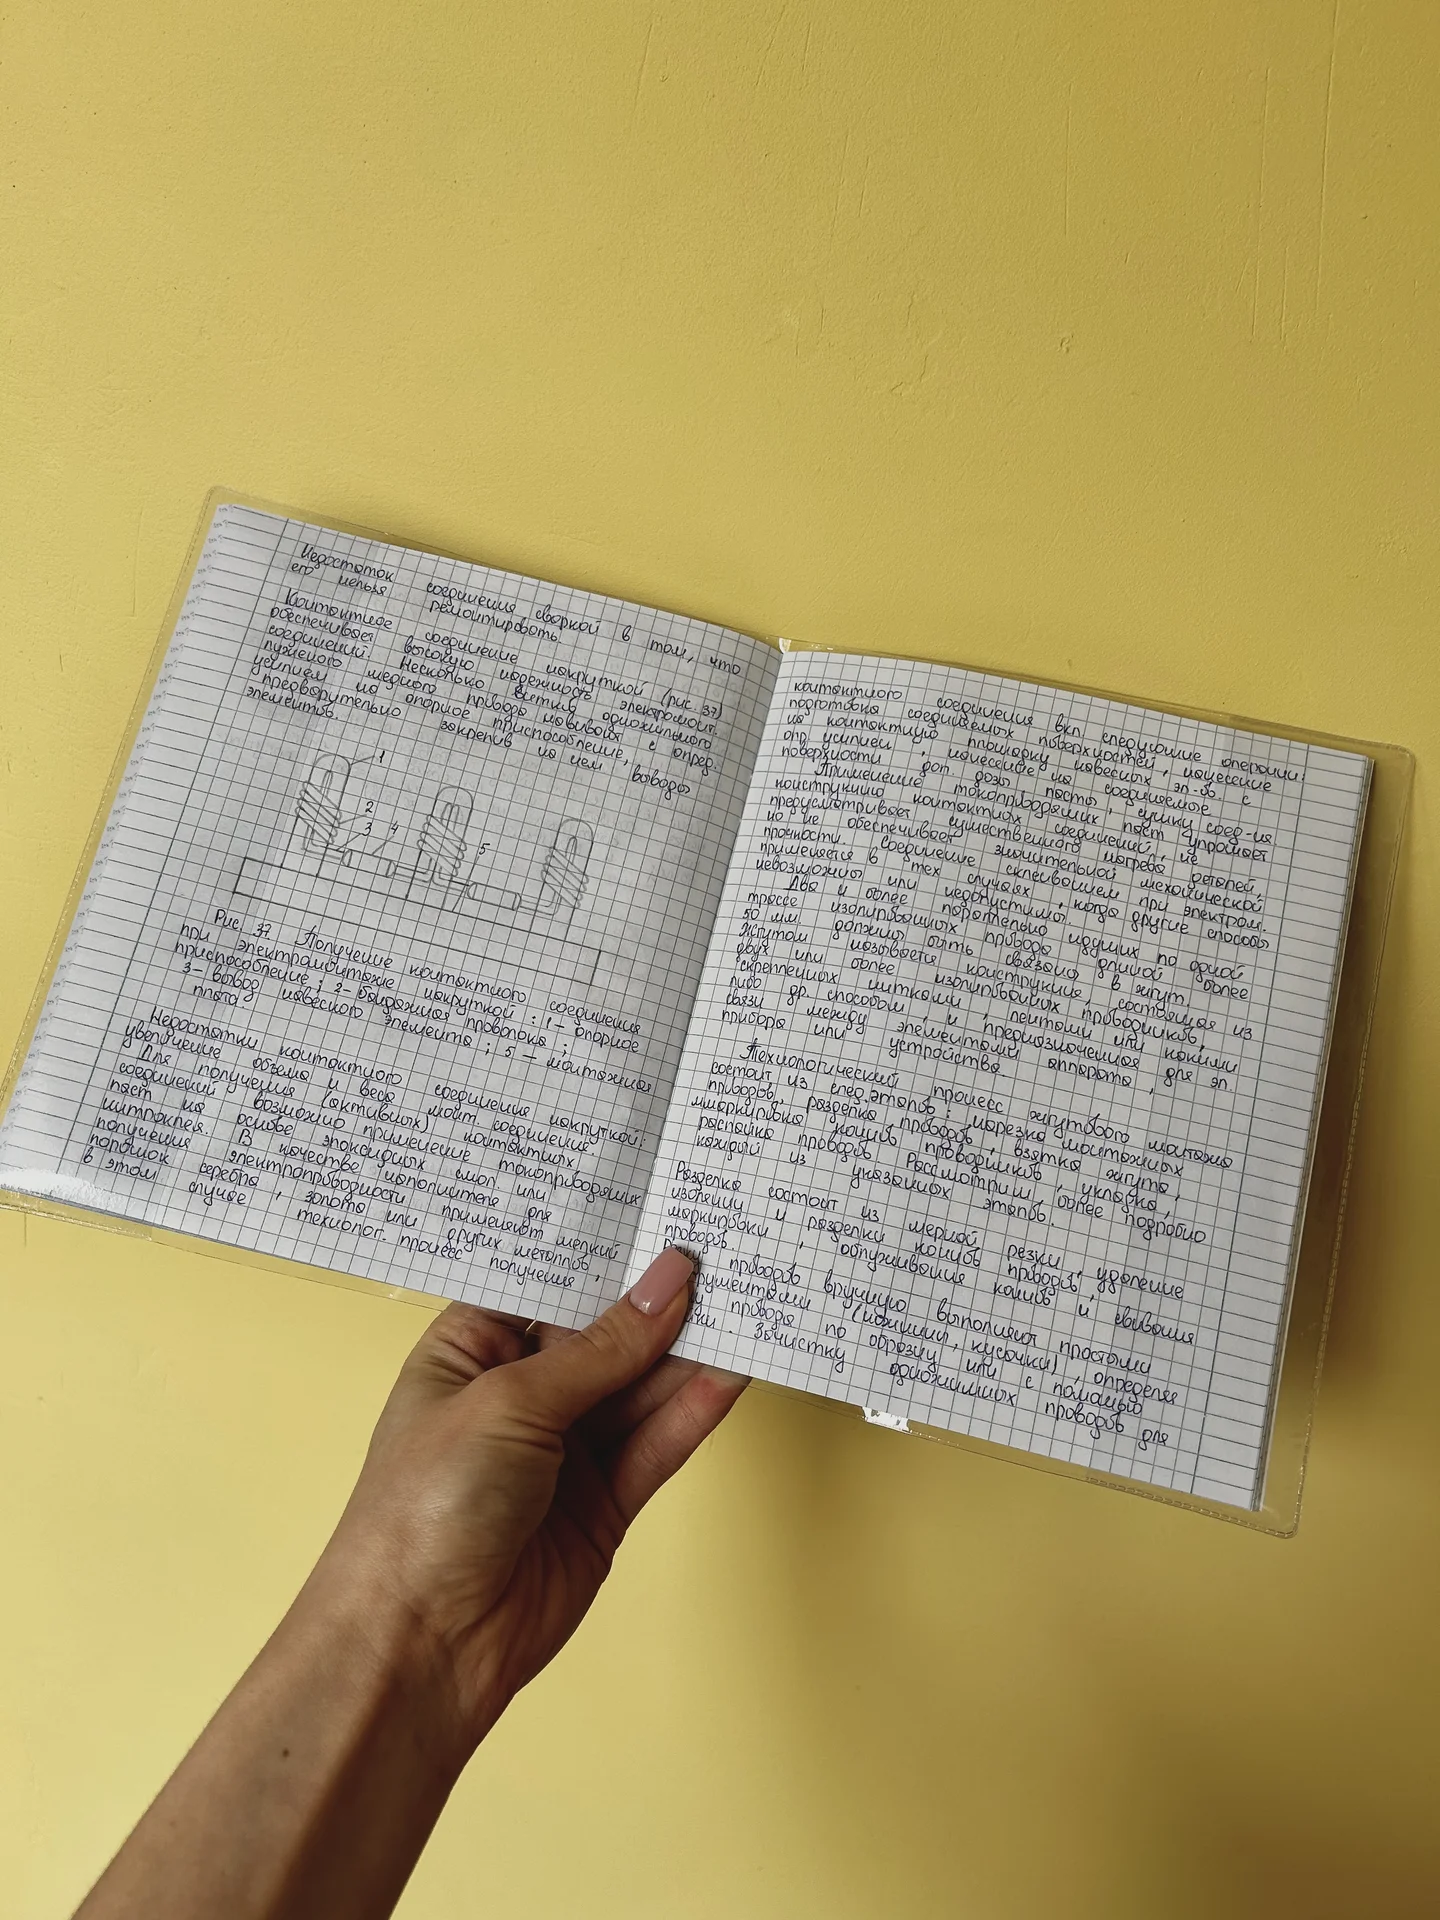 Недостаток соединения сваркой в том, что
его нельзя ремонтировать.
Контактное соединение накруткой (рис. 37)
обеспечивает высокую надежность электромонт.
соединений. Несколько витков одножильного
луженого медного провода навивают с опред.
усилием на опорное приспособление,
предварительно закрепив на нем выводы
элементов.
1
2
3 4
5
Рис. 37 Получение контактного соединения
при электромонтаже накруткой: 1 – опорное
приспособление; 2 – бандажная проволока;
3 – вывод навесного элемента; 5 – монтажная
плата.
Недостатки контактного соединения накруткой:
увеличение объема и веса монт. соединения.
Для получения (активных) контактных
соединений возможно применение токопроводящих
паст на основе эпоксидных смол или
нитроклея. В качестве наполнителя для
получения электропроводности применяют мелкий
порошок серебра, золота или других металлов,
в этом случае технолог. процесс получения
контактного соединения вкл. следующие операции:
подготовка соединяемых поверхностей, нанесение
на контактную площадку навесных эл-ов. с
опр усилием, нанесение на соединяемые
поверхности доп. дозы пасты, сушку соед-ия
Применение токопроводящих паст упрощает
конструкцию контактных соединений, не
предусматривает существенного нагрева деталей,
но не обеспечивает значительной механической
прочности. Соединение склеиванием при электром.
применяется в тех случаях, когда другие способы
невозможны или недопустимы.
Два и более параллельно идущих по одной
трассе изолированных провода длиной более
50 мм. должны быть связаны в жгут.
Жгутом называется конструкция, состоящая из
двух или более изолированных проводников,
скрепленных нитками, лентами или какими
либо др. способом, и предназначенная для эл.
связи между элементами аппарата,
прибора или устройства.
Технологический процесс жгутового монтажа
состоит из след. этапов: нарезка монтажных
проводов, разделка проводов, вязка жгута,
ммаркировка концов проводников, укладка,
распайка проводов Рассмотрим более подробно
каждый из указанных этапов.
Разделка состоит из мерной резки, удаление
изоляции и разделки концов проводов,
маркировки, облуживания концов и свивания
проводов.
Резку проводов вручную выполняют простыми
рументами (ножницы, кусачки), определяя
у провода по образцу или с помащью
йки. Зачистку одножильных проводов для